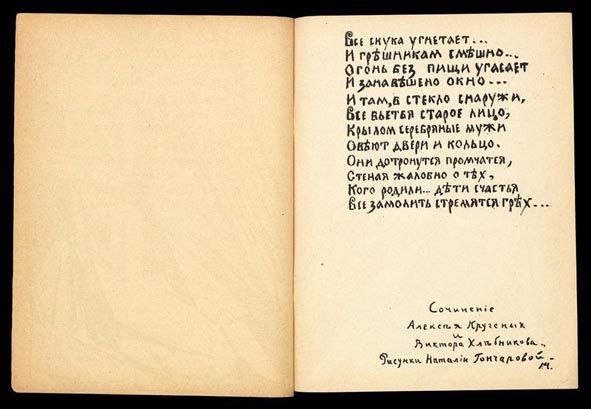 Все скука угнетает...
И грѣшникам смѣшно...
Огонь без пищи угасает
И занавѣшено окно...
И там, в стекло снаружи,
Все бьется старое лицо,
Крылом серебряные мужи
Овеют двери и кольцо.
Они дотронутся промчатся,
Стеная жалобно о тѣх,
Кого родили... дѣти счастья
Все замолить стремятся грѣх...
Сочинение
Алексѣя Крученых
и
Виктора Хлѣбникова
Рисунки Наталiи Гончаровой